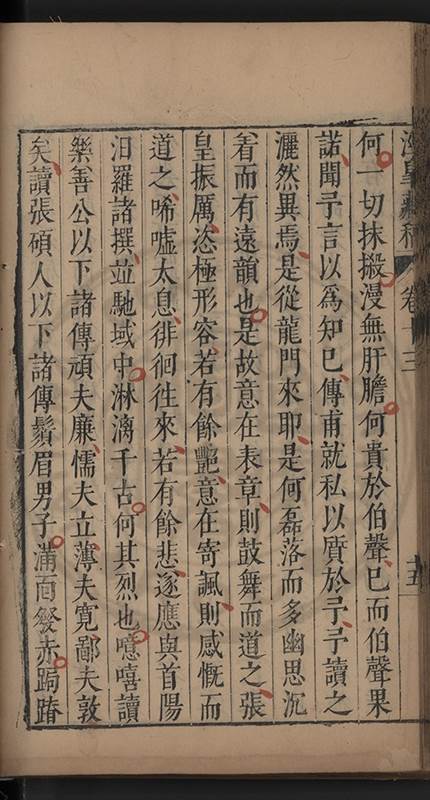 何一切抹摋漫無肝膽何貴於伯聲巳而伯聲果
諾聞予言以為知巳傳甫就私以質於予予讀之
灑然異焉是從龍門來耶是何磊落而多幽思沉
着而有遠韻也是故意在表章則鼓舞而道之張
皇振厲恣極形容若有餘艷意在寄諷則感慨而
道之唏噓太息徘徊徃來若有餘悲遂應與首陽
汨羅諸撰並馳域中淋漓千古何其烈也噫嘻讀
樂善公以下諸傳頑夫廉懦夫立薄夫寬鄙夫敦
矣讀張碩人以下諸傳鬚眉男子滿面發赤跼蹐
卷十三
十五